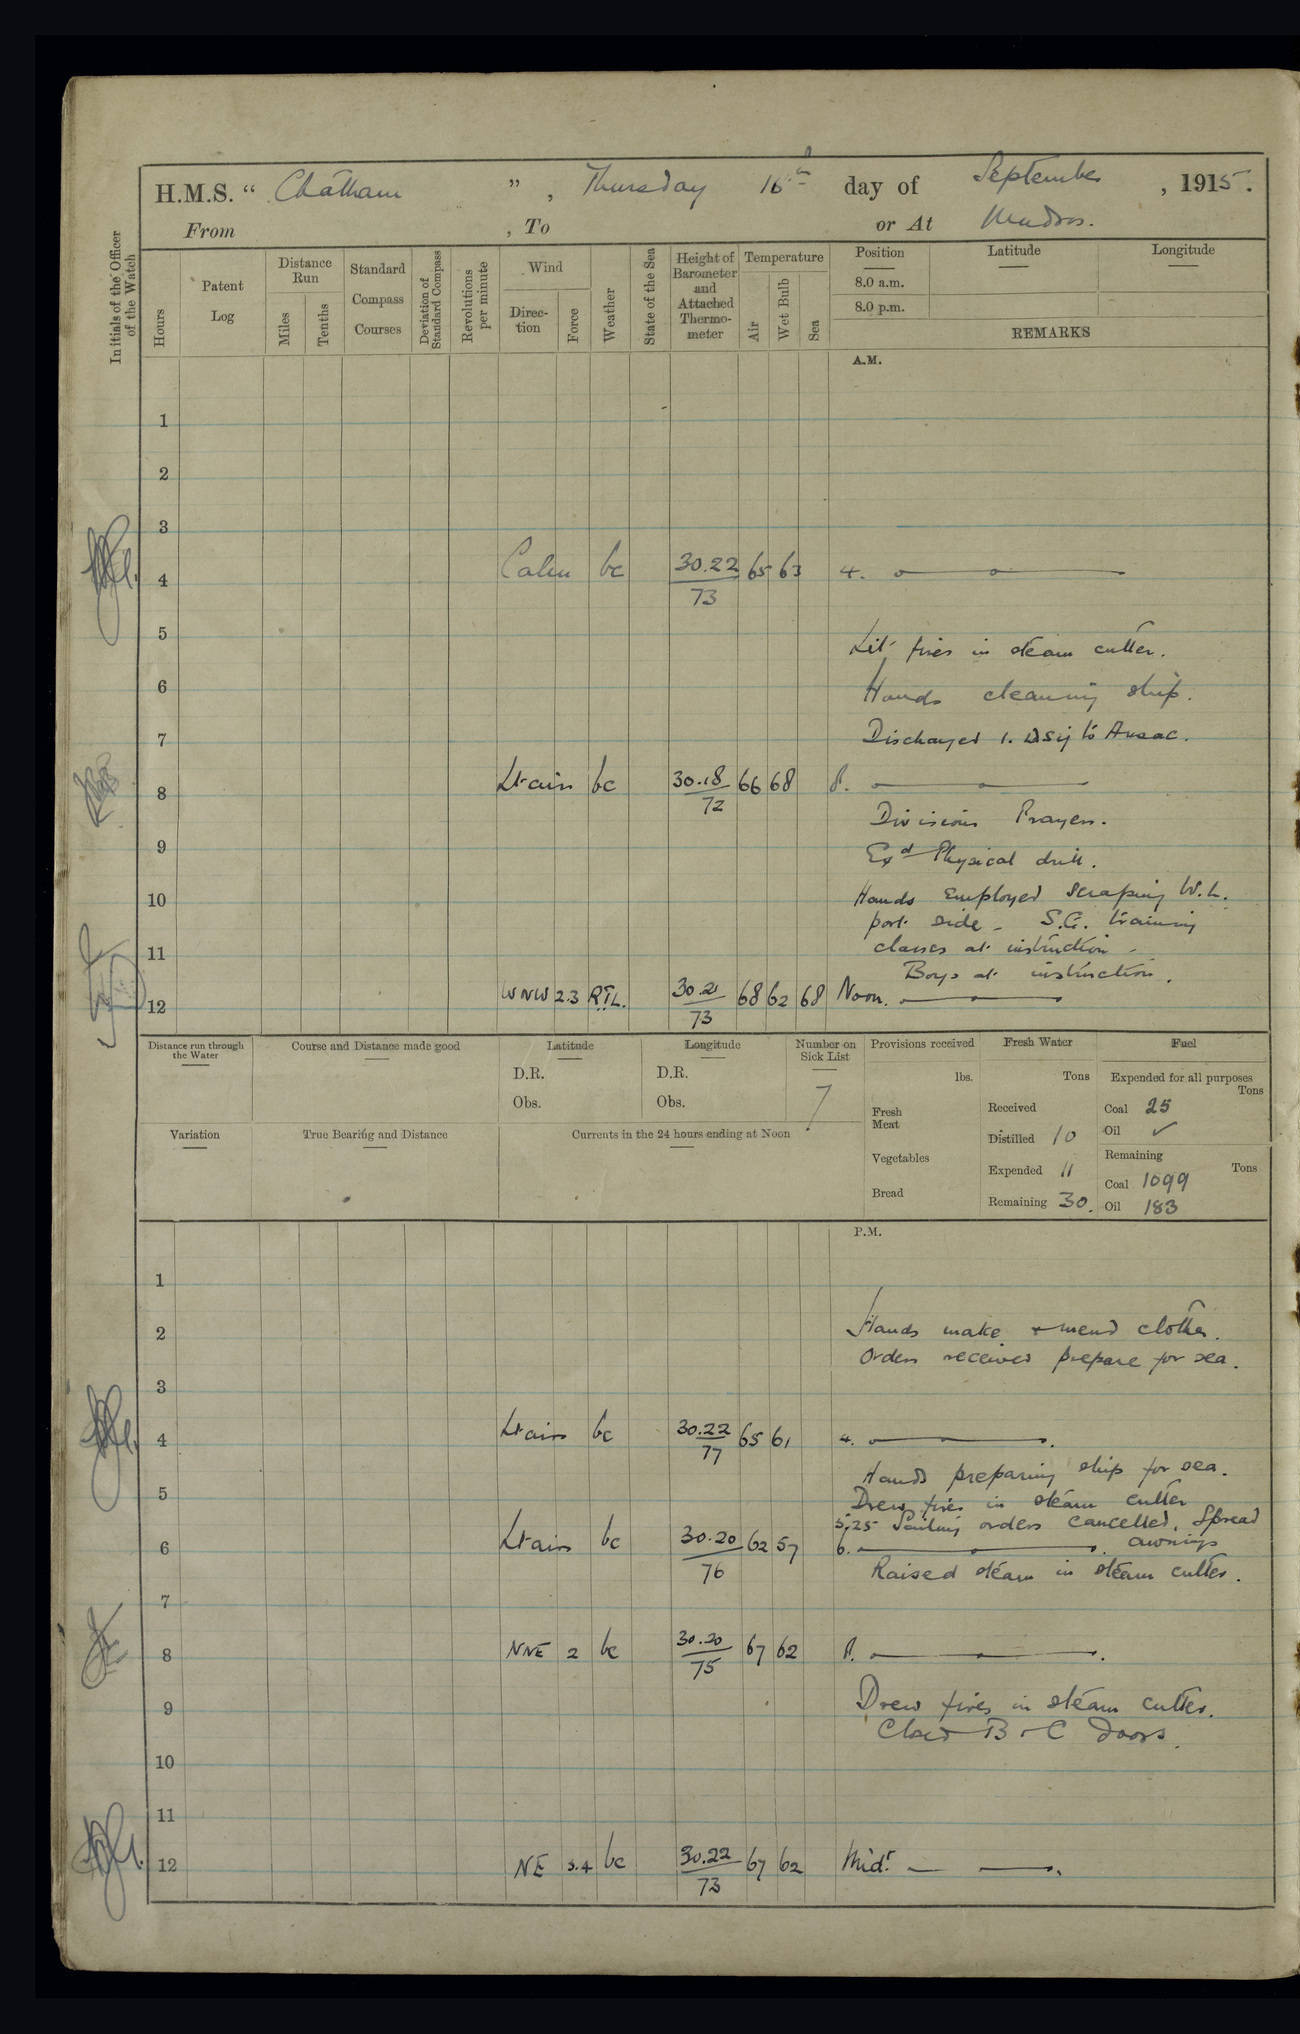 H.M.S. “ Chatham ” , Thursday 16th day of September , 1915.
From , To or At Mudros.
Initials of the Officer of the Watch
Hours
Patent Log
Distance Run
Miles
Tenths
Standard Compass Courses
Deviation of Standard Compass
Revolutions per minute
Wind
Direction
Force
Weather
State of the Sea
Height of Barometer and Attached Thermometer
Temperature
Air
Wet Bulb
Sea
Position Latitude Longitude
8.0 a.m.
8.0 p.m.
REMARKS
A.M.
1
2
3
4 Calm bc 30.22/73 65 63 4.
5 Lit fires in steam cutter.
6 Hands cleaning ship.
7 Discharged 1. Sig to Anzac.
8 Lt airs bc 30.18/72 66 68 8.
Divisions Prayers.
9 Exd Physical drill.
10 Hands employed scraping W.L.
port side - S.G. training
11 classes at instruction -
Boys at instruction.
12 WNW 2.3 R.T.L. 30.21/73 68 62 68 Noon.
Distance run through the Water
Course and Distance made good
Latitude
D.R.
Obs.
Longitude
D.R.
Obs.
Number on Sick List
7
Provisions received
lbs.
Fresh Meat
Vegetables
Bread
Fresh Water
Tons
Received
Distilled 10
Expended 11
Remaining 30.
Fuel
Expended for all purposes
Tons
Coal 25
Oil ✓
Remaining
Tons
Coal 1099
Oil 183
Variation
True Bearing and Distance
Currents in the 24 hours ending at Noon
P.M.
1
2 Hands make & mend clothes.
Orders received prepare for sea.
3
4 Lt airs bc 30.22/77 65 61 4.
Hands preparing ship for sea.
5 Drew fires in steam cutter
5.25 Sailing orders cancelled. Spread
awnings
6 Lt airs bc 30.20/76 62 57 6.
Raised steam in steam cutter.
7
8 NNE 2 bc 30.20/75 67 62 8.
9 Drew fires in steam cutter.
Closed B & C doors.
10
11
12 NE 3.4 bc 30.22/73 67 62 Midt.